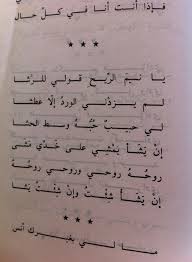 فإذا أنت أنا في كل حال
***
يا نسيم الرّيح قولي للرّشا
لم يزدني الورد إلّا عطشا
لي حبيبٌ حُبّهُ وسط الحشا
إنْ يشَأْ يمْشِي على خدّي مشى
روحُهُ روحي وروحي روحُهُ
إنْ يشَأْ شِئتُ وإنْ شِئتُ يشَا
***
مالي بغيرك أنس